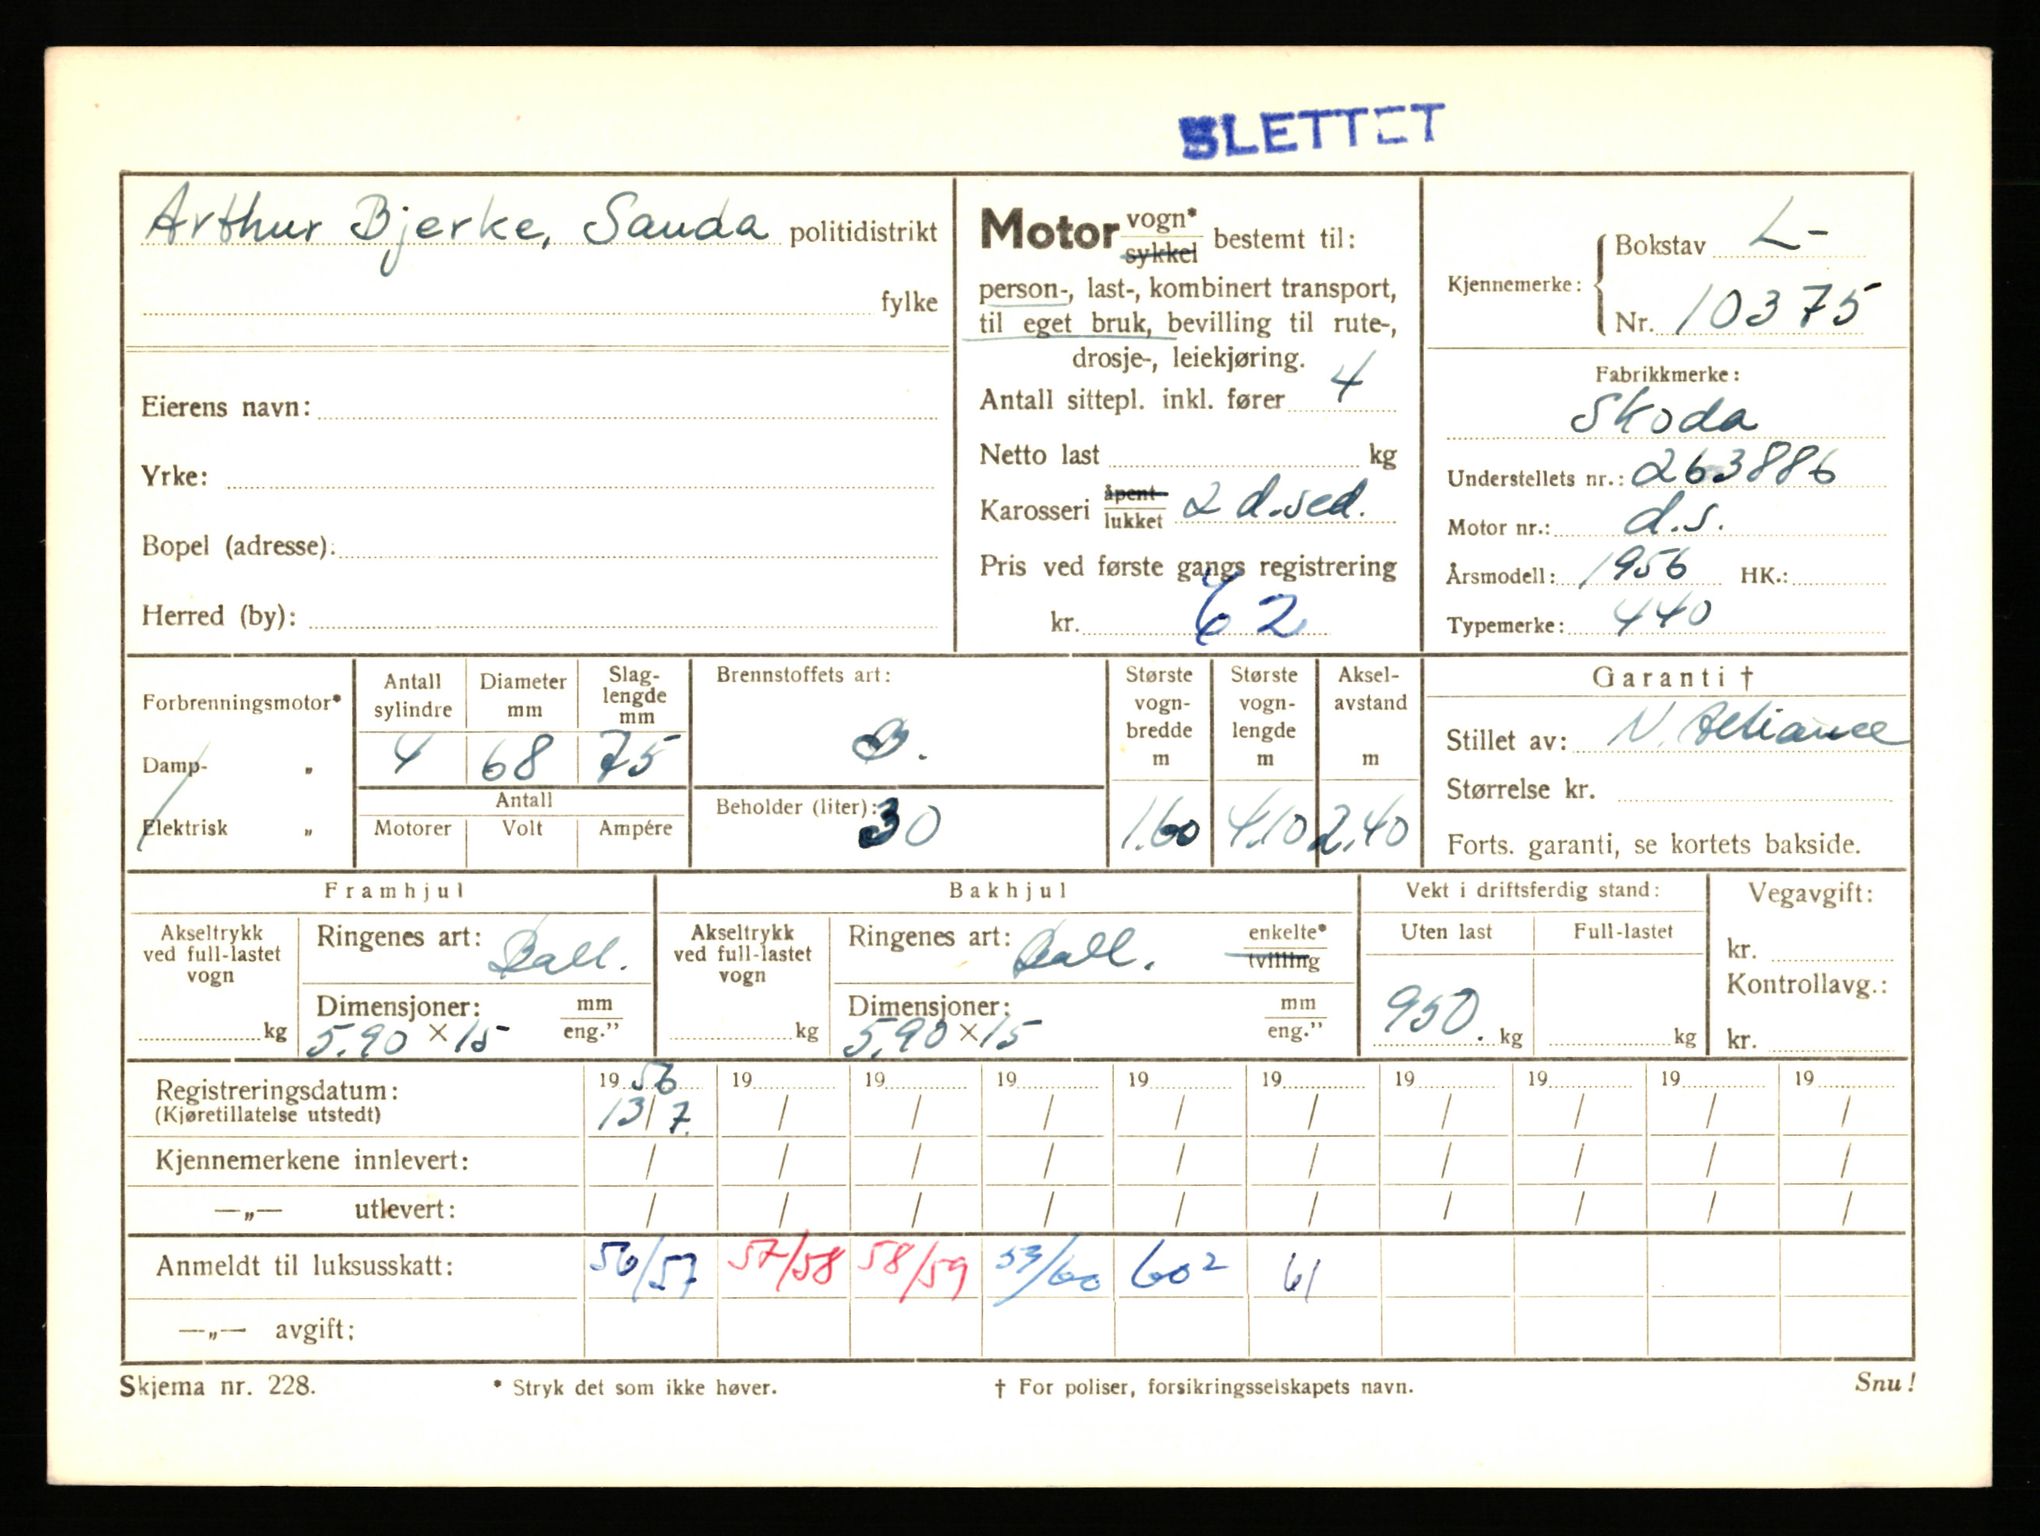 SLETTET
Arthur Bjerke, Sauda politidistrikt
fylke
Eierens navn:
Yrke:
Bopel (adresse):
Herred (by):
Motor vogn* sykkel bestemt til:
person-, last-, kombinert transport,
til eget bruk, bevilling til rute-,
drosje-, leiekjøring.
Antall sittepl. inkl. fører 4
Netto last kg
Karosseri åpent lukket 2 d.sed.
Pris ved første gangs registrering
kr. 62
Kjennemerke: Bokstav L-
Nr. 10375
Fabrikkmerke:
Skoda
Understellets nr.: 263886
Motor nr.: d.s.
Årsmodell: 1956 HK.:
Typemerke: 440
Forbrenningsmotor*
Damp- „
Elektrisk „
Antall sylindre Diameter mm Slag-lengde mm
4 68 75
Antall
Motorer Volt Ampére
Brennstoffets art:
B.
Beholder (liter):
30
Største vogn-bredde m
1.60
Største vogn-lengde m
4.10
Aksel-avstand m
2.40
Garanti †
Stillet av: N. Alliance
Størrelse kr.
Forts. garanti, se kortets bakside.
Framhjul
Akseltrykk
ved full-lastet
vogn
kg
Ringenes art: Ball.
Dimensjoner: mm
5.90 x 15 eng."
Bakhjul
Akseltrykk
ved full-lastet
vogn
kg
Ringenes art: Ball. enkelte* tvilling
Dimensjoner: mm
5.90 x 15 eng."
Vekt i driftsferdig stand:
Uten last Full-lastet
950 kg kg
Vegavgift:
kr.
Kontrollavg.:
kr.
Registreringsdatum: 1956 19 19 19 19 19 19 19 19 19
(Kjøretillatelse utstedt) 13/7. / / / / / / / / /
Kjennemerkene innlevert: / / / / / / / / / /
—„— utlevert: / / / / / / / / / /
Anmeldt til luksusskatt: 56/57 57/58 58/59 59/60 60² 61
—„— avgift:
Skjema nr. 228. * Stryk det som ikke høver. † For poliser, forsikringsselskapets navn. Snu!